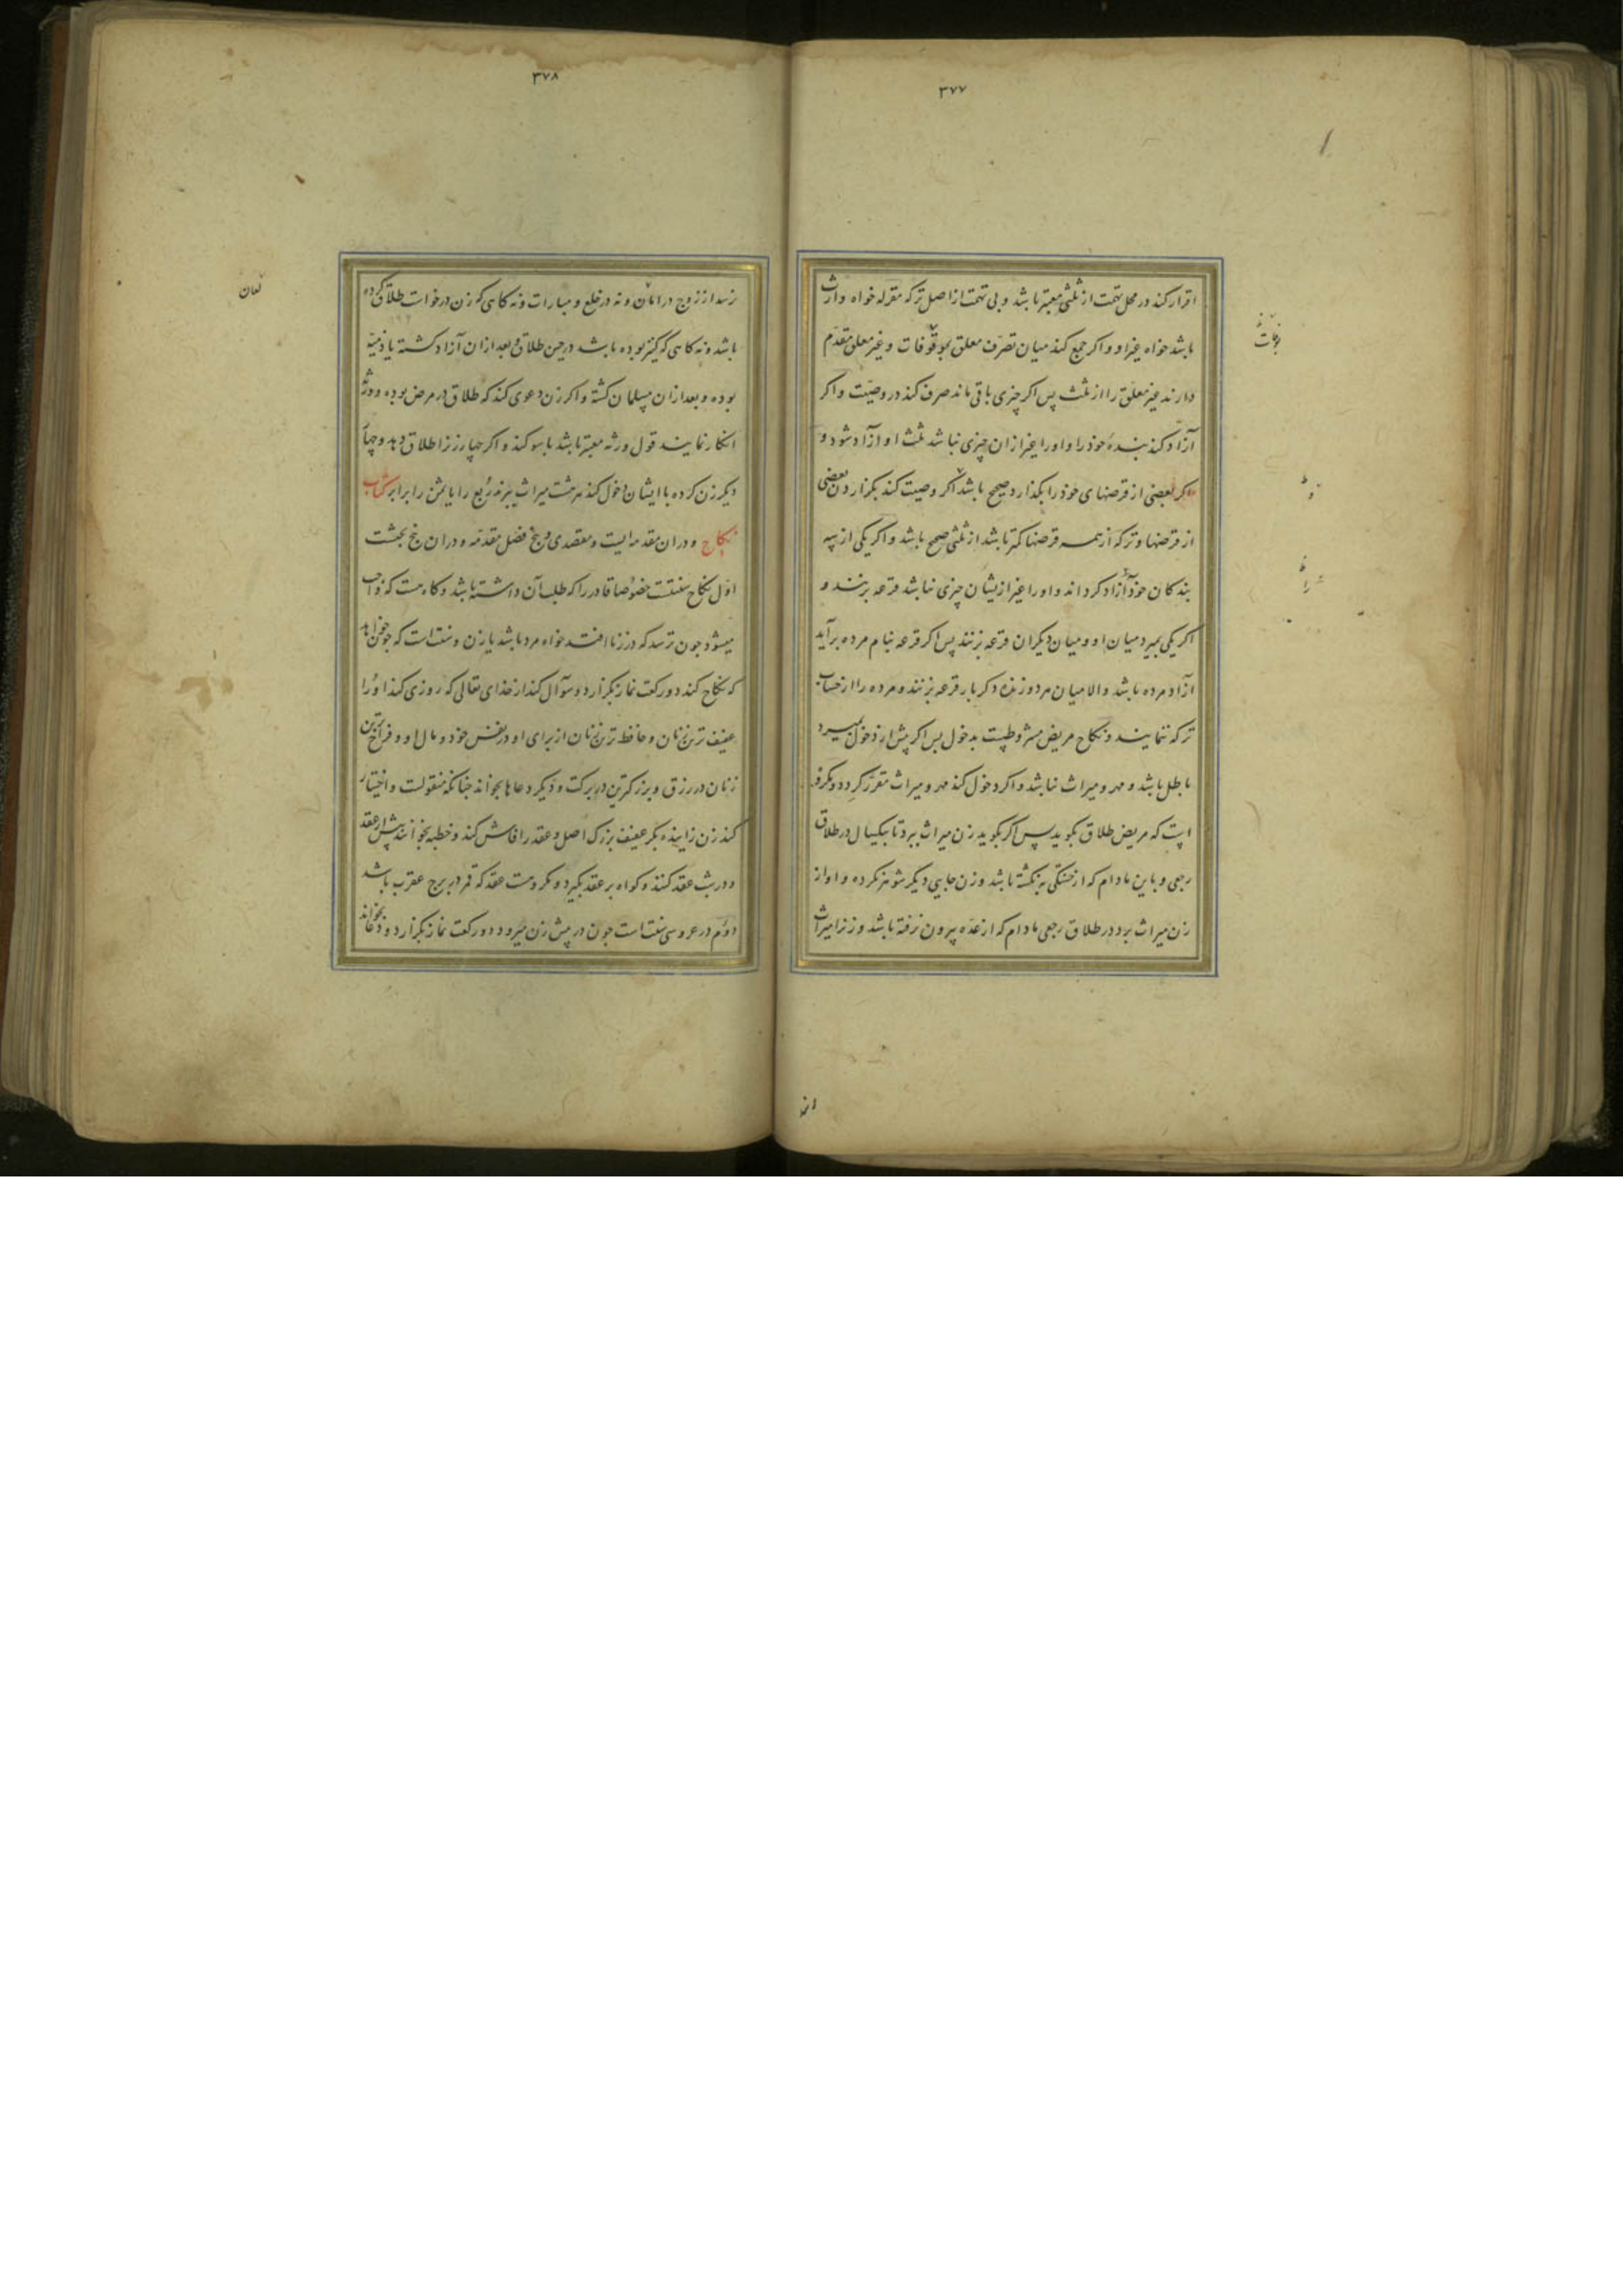 ۳۷۷
اقرار کند در محل تهمت از ثلث معتبر باشد و بی تهمت از اصل ترکه مقرله خواه وارث
باشد خواه غیر او و اگر جمع کند میان تصرف معلق بوفات و غیر معلق مقدم
دارند غیر معلق را از ثلث پس اگر چیزی باقی ماند صرف کند در وصیت و اگر
آزاد کند بندهٔ خود را و او را غیر ازان چیزی نباشد ثلث او آزاد شود و
اکر بعضی از قرضهای خود را بگذارد صحیح باشد اگر وصیت کند بگزاردن بعضی
از قرضها و ترکه از همه قرضها کمتر باشد از ثلث صحیح باشد و اگر یکی از سه
بندکان خود آزاد کرداند و او را غیر ازیشان چیزی نباشد قرعه بزنند و
اکر یکی بمیرد میان او و میان دیگران قرعه بزنند پس اگر قرعه بنام مرده برآید
آزاد مرده باشد والا میان هر دو زنده دکر بار قرعه بزنند و مرده را از حساب
ترکه ننمایند و نکاح مریض مشروطست بدخول پس اکر پیش از دخول بمیرد
باطل باشد و مهر و میراث نباشد و اگر دخول کند مهر و میراث مقرر کردد و مکروه
است که مریض طلاق بگوید پس اگر بگوید زن میراث ببرد تا یکسال در طلاق
رجعی و باین مادام که از خستگی به نگشته باشد و زن جایی دیگر شوهر نکرده و او از
زن میراث برد در طلاق رجعی مادام که از عده بیرون نرفته باشد و زن را میراث
۳۷۸
نرسد از زوج در لعان و نه در خلع و مبارات و نه کاهی که زن درخواست طلاق کرده
باشد و نه کاهی که کنیز بوده باشد در حین طلاق و بعد ازان آزاد کشته یا ذمیه
بوده و بعد ازان مسلمان کشته و اگر زن دعوی کند که طلاق در مرض بوده و ورثه
انکار نمایند قول ورثه معتبر باشد با سوکند و اگر چهار زن را طلاق دهد و چهار
دیگر زن کرده با ایشان دخول کند هر هشت میراث ببرند ربع را یا ثمن را برابر کتاب
نکاح و دران مقدمه ایست و مقصدی و پنج فصل مقدمه و دران پنج بحثست
اول نکاح سنتست خصوصا قادر را که طلب آن داشته باشد و کاه هست که واجب
میشود چون ترسد که در زنا افتد خواه مرد باشد یا زن و سنت است که چون خواهد
که نکاح کند دو رکعت نماز بگزارد و سوآل کند از خدای تعالی که روزی کند او را
عفیف ترین زنان و حافظ ترین زنان از برای او در نفس خود و مال او و فراخ ترین
زنان در رزق و بزرکترین در برکت و دیگر دعاها بخواند چنانکه منقولست و اختیار
کند زن زاینده بکر عفیف بزرک اصل و عقد را فاش کند و خطبه بخوانند پیش از عقد
و در شب عقد کنند و کواه بر عقد بگیرد و مکروهست عقد که قمر در برج عقرب باشد
دوم در عروسی سنت است چون در پیش زن میرود دو رکعت نماز بگزارد و دعا بخواند
لعان